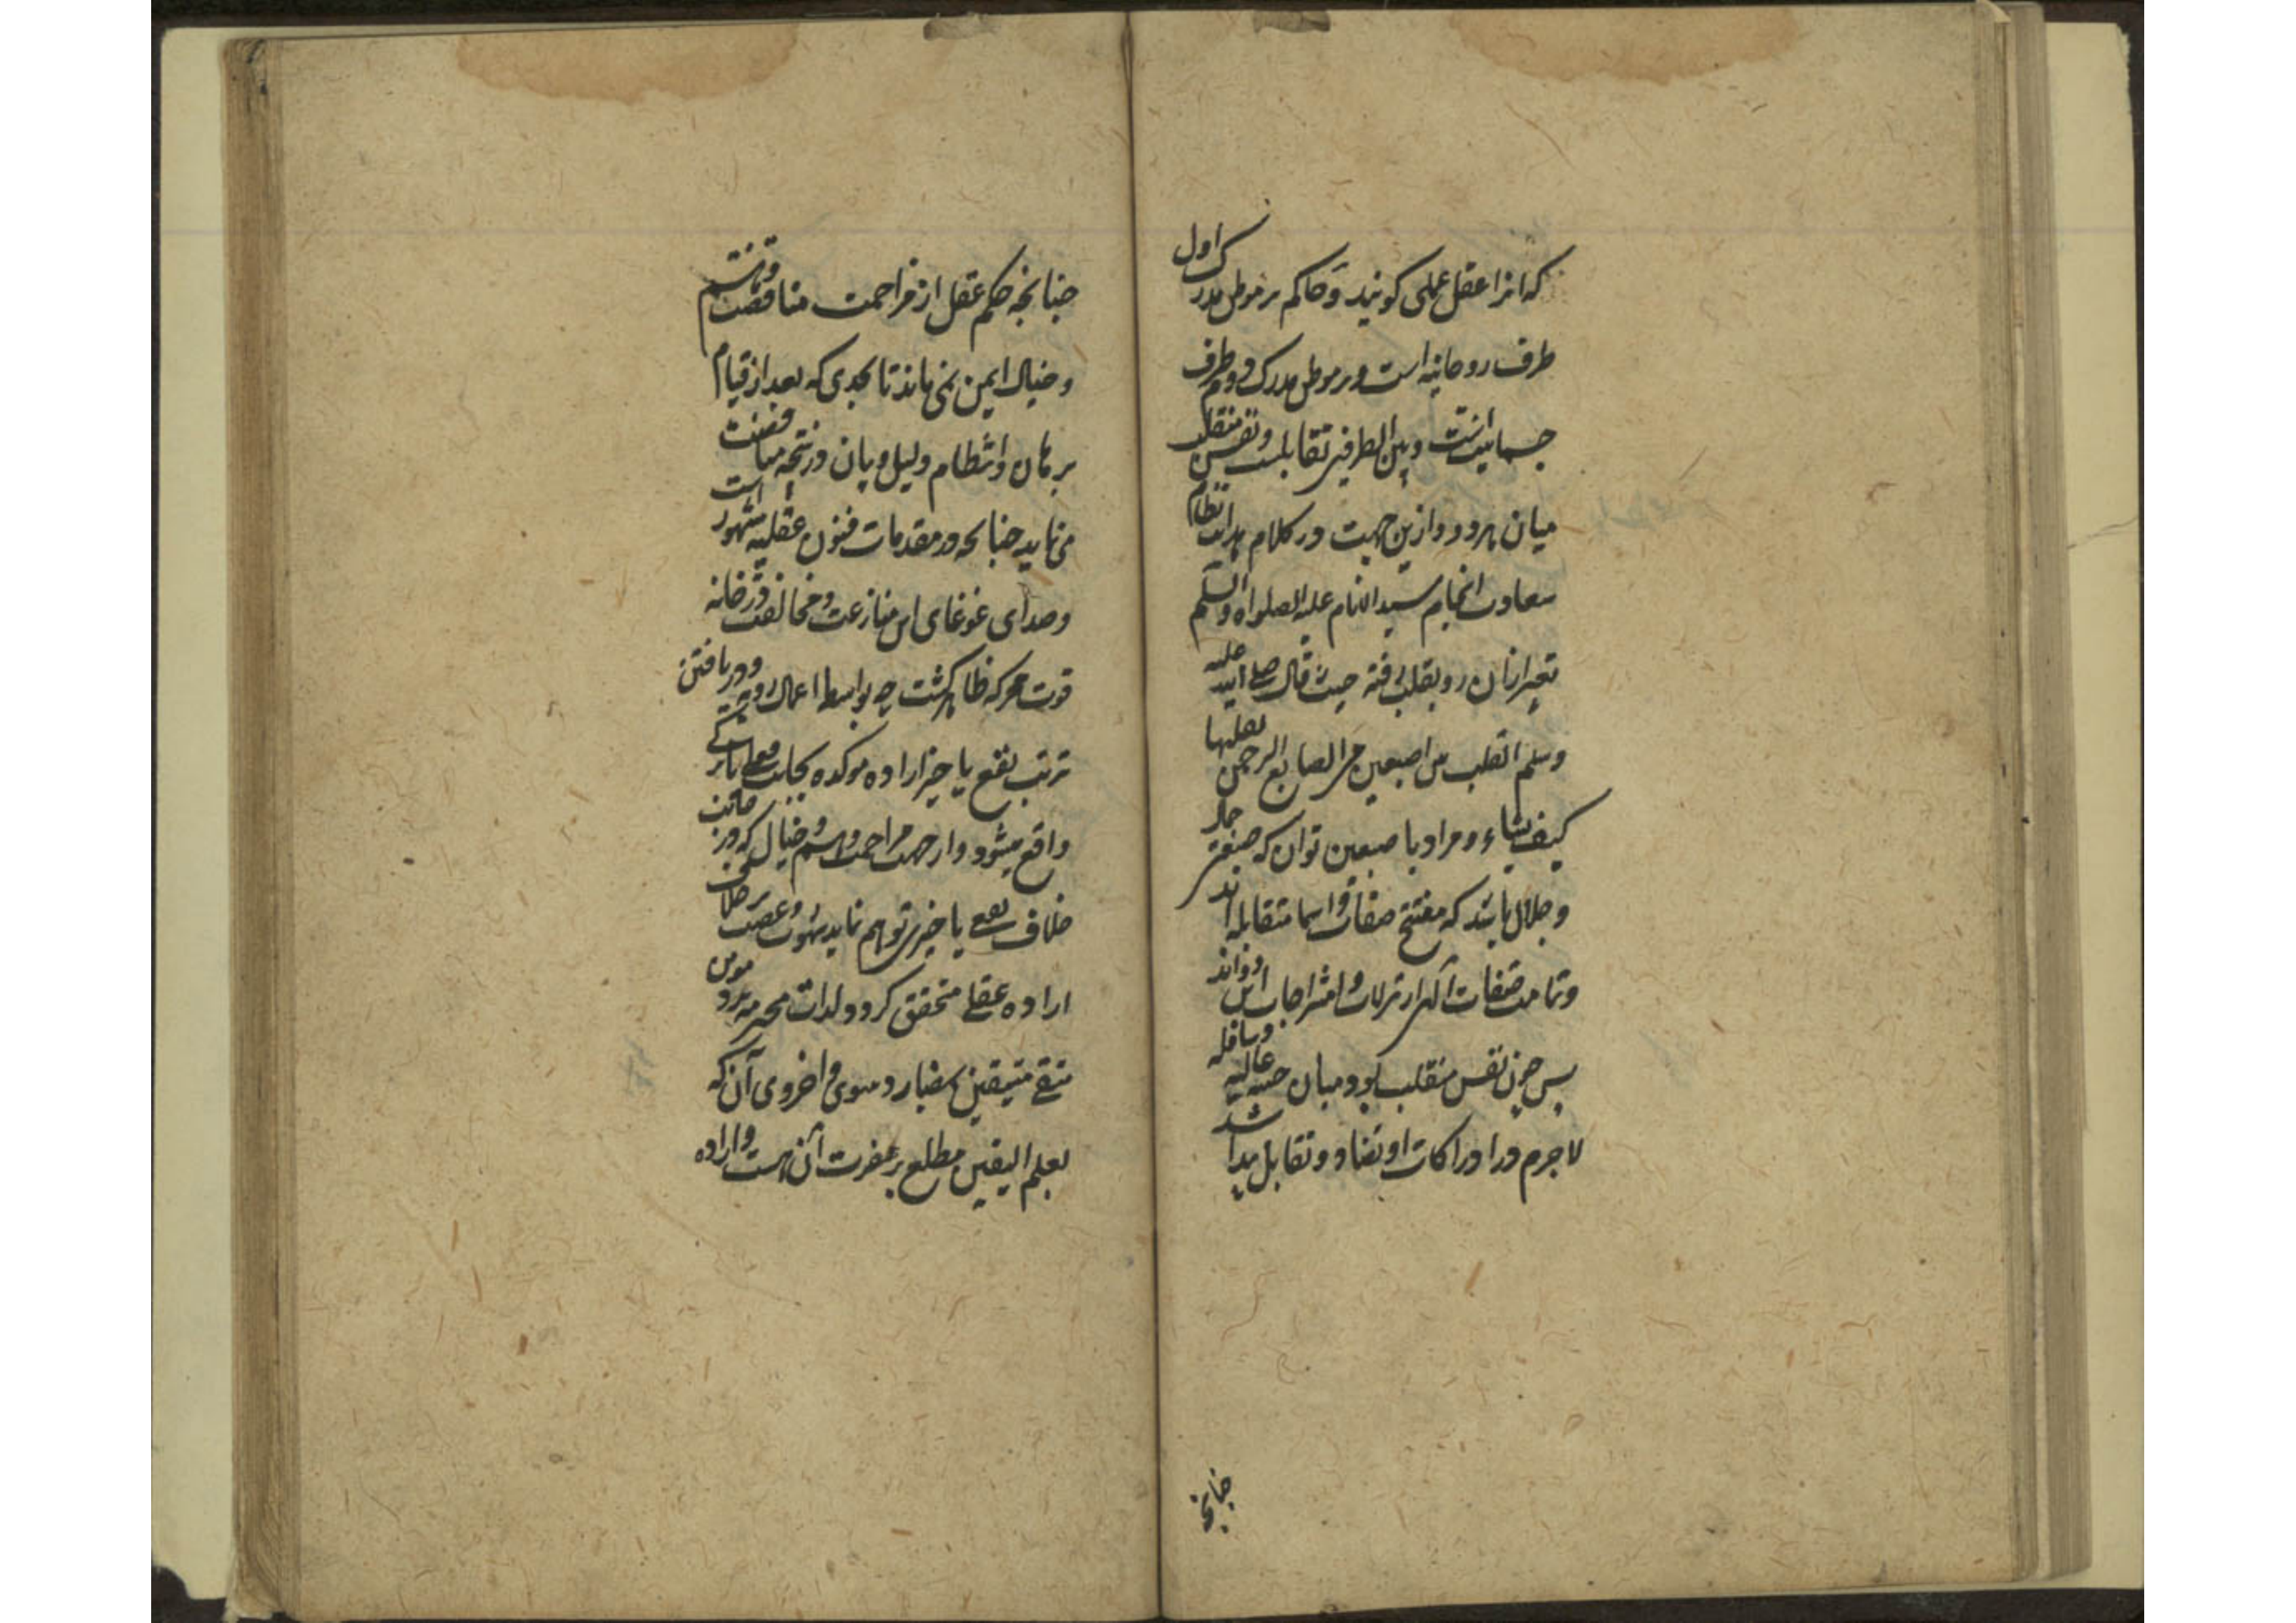 که انرا عقل عملی کویند و حاکم بر موطن مدرک اول
طرف روحانیه است و بر موطن مدرک دوم طرف
جسمانیتست و بین الطرفین تقابلست و نفس منقلب
میان هردو و ازین جهت در کلام هدایت انتظام
سعادت انجام سید الانام علیه الصلواه والسلم
تعبیر ازان روبقلب رفته حیث قال صلی الله علیه
وسلم القلب بین اصبعین من اصابع الرحمن یقلبها
کیف یشاء و مراد باصبعین تواند که صفت جمال
و جلال باشد که مفتتح صفات و اسما متقابله اند
و تمامت صفات الهی از تنزلات و امتزاجات این دواند
پس چون نفس منقلب بود میان جنبه عالیه وسافله
لاجرم در ادراکات او تضاد و تقابل پیدا شد
چنانچه
چنانچه حکم عقل از مزاحمت مناقضت وهم
و خیال ایمن نمی ماند تا بحدی که بعد از قیام
برهان و انتظام دلیل و بیان در نتیجه مناقضت
می نماید چنانچه در مقدمات فنون عقلیه مشهور است
و صدای غوغای این منازعت و مخالفت در خانه
قوت محرکه ظاهرگشت چه بواسطه اعمال رویه و دریافتن
ترتب نفع یا خیر اراده موکده بجانب فعلی یا ترکی
واقع میشود و از جهت مزاحمت وهم و خیال که در جانب
خلاف نفعی یا خیری توهم نماید شهوت و غضب بر خلاف
اراده عقلی متحقق کردد ولذات محرمه نزد مومن
متقی متیقن بمضار دنیوی و اخروی آن که
بعلم الیقین مطلع بر مضرت آن هست و اراده